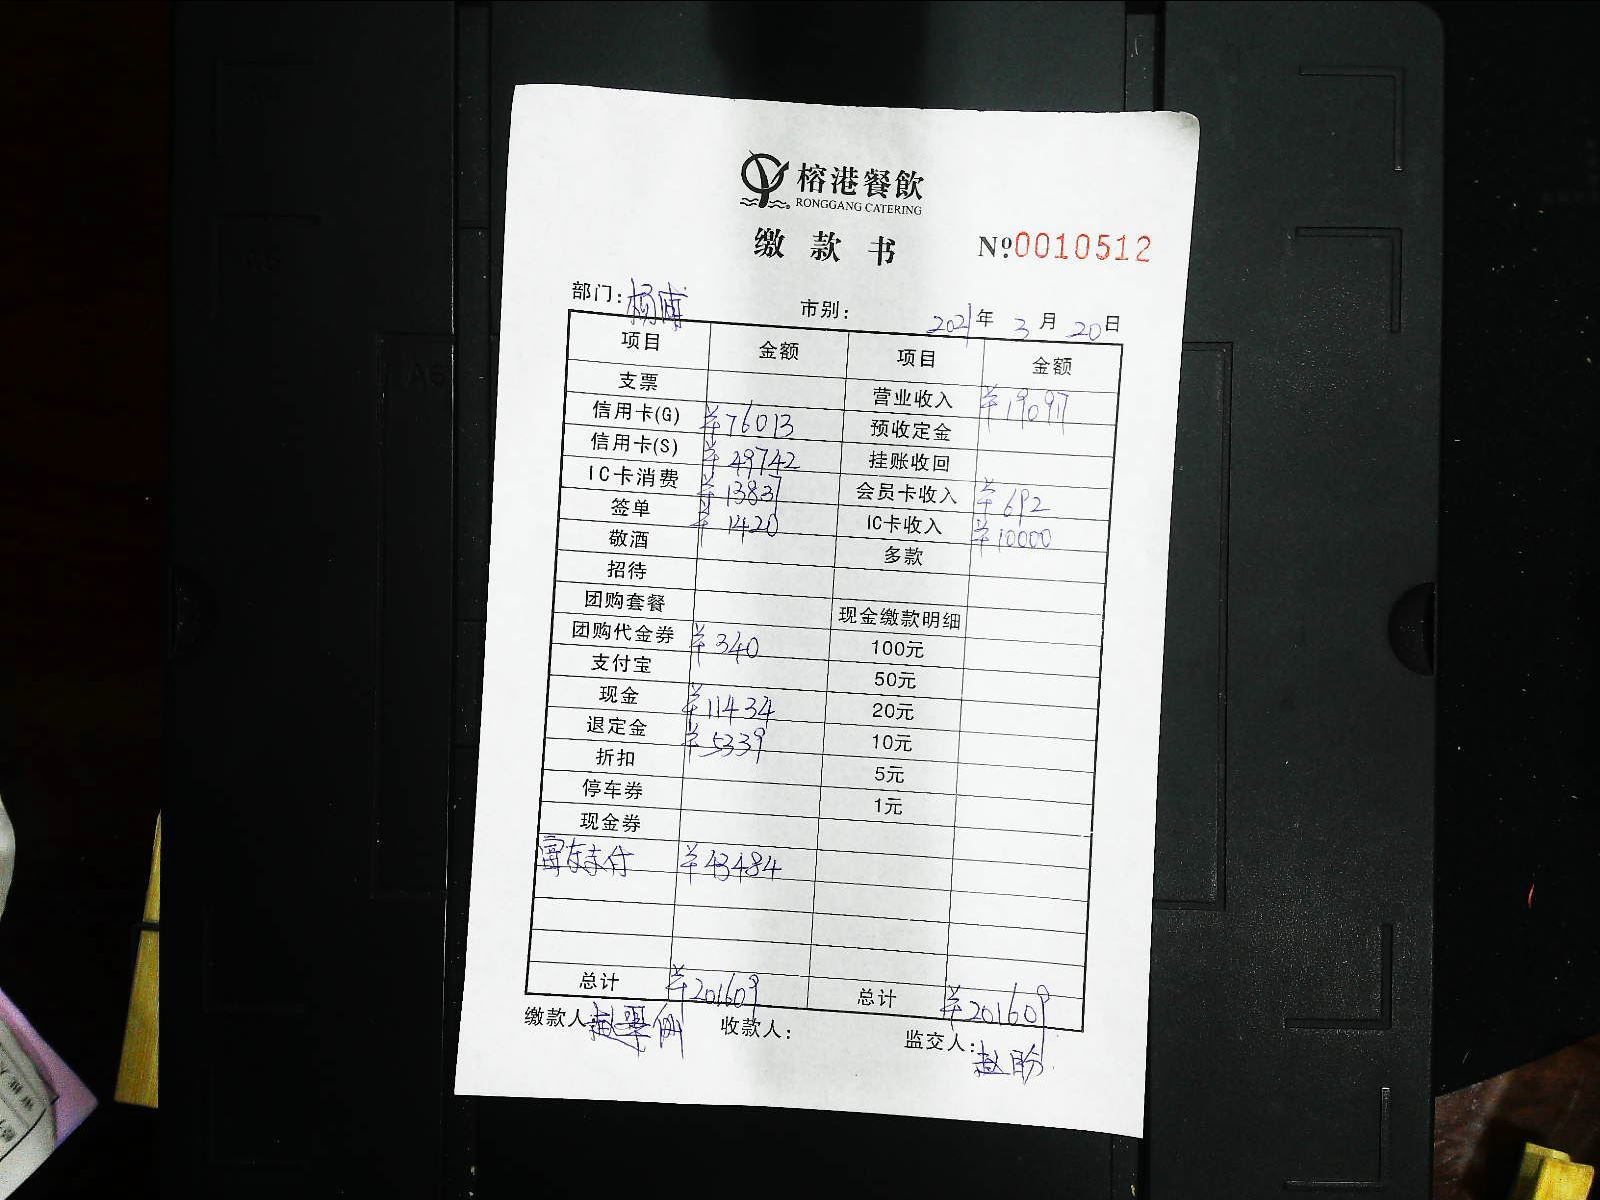 榕港餐飲
RONGGANG CATERING
缴款书 №0010512
部门: 市别: 2021年 3月 20日
项目 金额 项目 金额
支票 营业收入 ¥190917
信用卡(G) ¥76013 预收定金
信用卡(S) ¥49742 挂账收回
IC卡消费 ¥13837 会员卡收入 ¥692
签单 ¥1420 IC卡收入 ¥10000
敬酒 多款
招待
团购套餐 现金缴款明细
团购代金券 ¥340 100元
支付宝 50元
现金 ¥11434 20元
退定金 ¥5339 10元
折扣 5元
停车券 1元
现金券
支付 ¥43484
总计 ¥201609 总计 ¥201609
缴款人: 收款人: 监交人: 赵盼